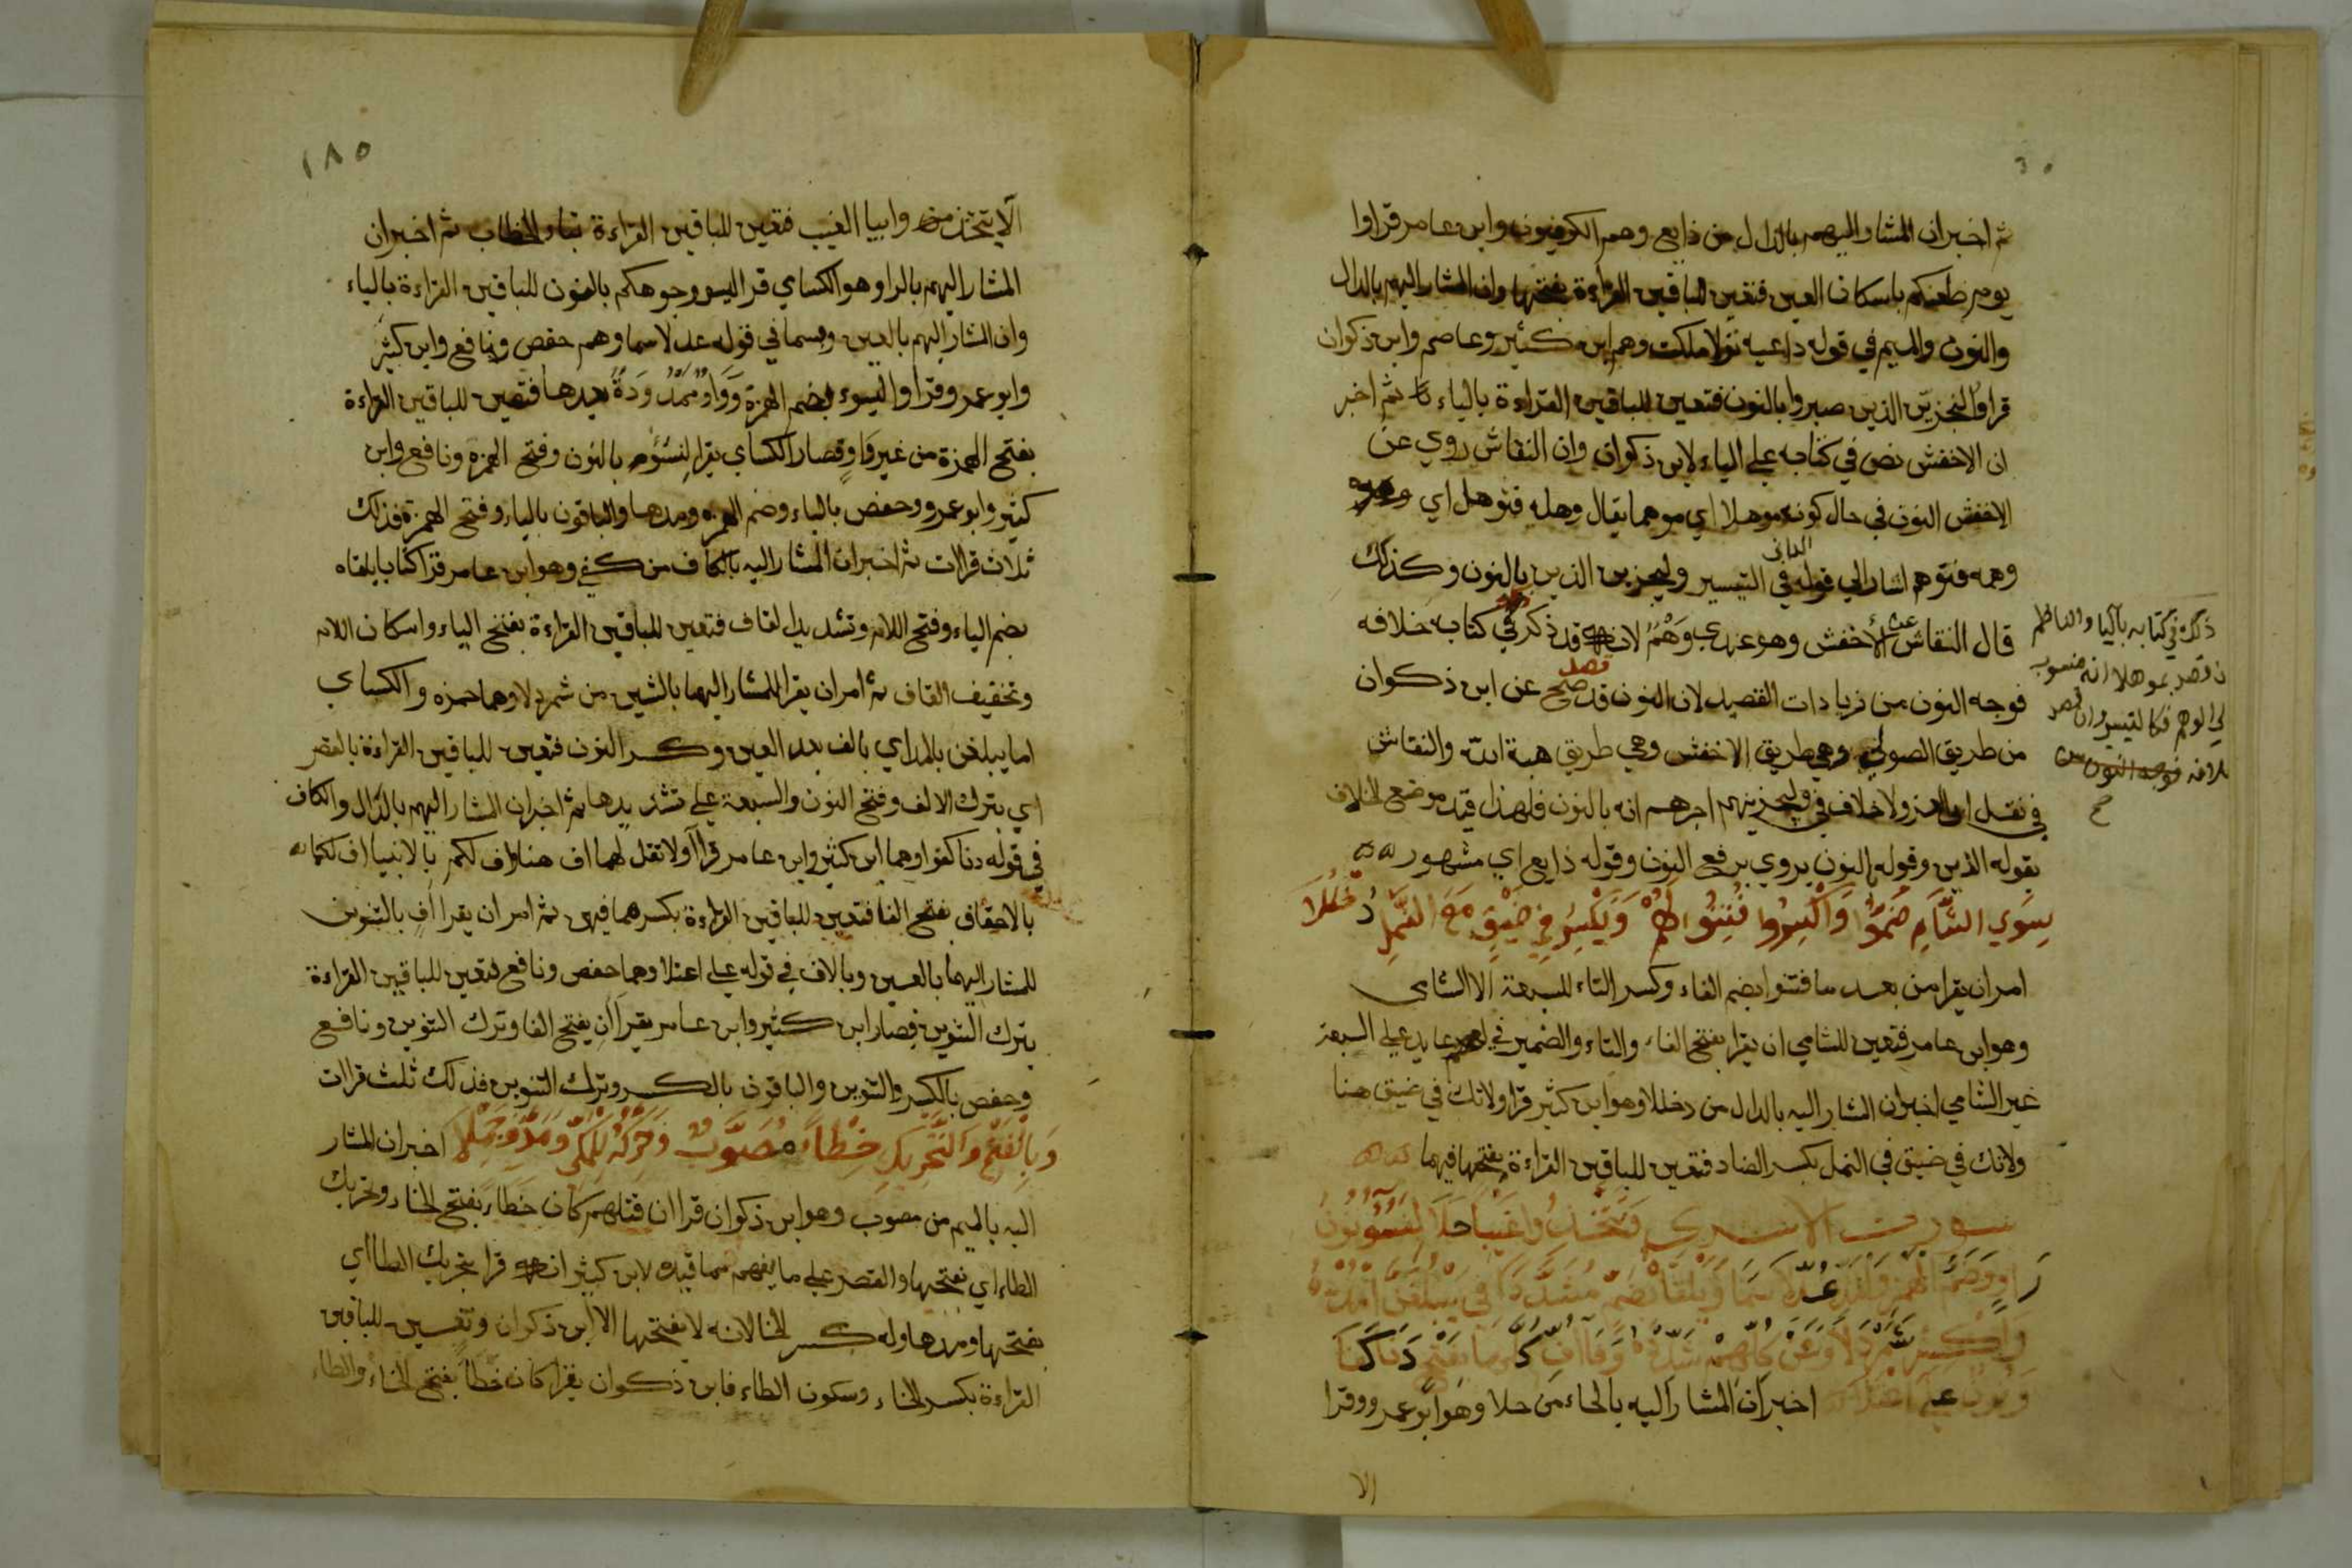 ثم اخبر ان المشار اليهم بالذال من ذايع وهم الكوفيون وابن عامر قراوا
يوم ظعنكم باسكان العين فتعين للباقين القراءة بفتحها وان المشار اليهم بالدال
والنون والميم في قوله داعيه نولا ملكت وهم ابن كثير وعاصم وابن ذكوان
قراوا لنجزين الذين صبروا بالنون فتعين للباقين القراءة بالياء ثم اخبر
ان الاخفش نص في كتابه على الياء لابن ذكوان وان النقاش روي عن
الاخفش النون في حال كونه موهلا اي موهما يقال وهله فتوهل اي
وهمه فتوهم اشار الي قوله الداني في التيسير وليجزين الذين بالنون وكذلك
قال النقاش عن الأخفش وهو عندي وَهْمٌ لانه قد ذكر في كتابه خلافه
فوجه النون من زيادات القصيد لان النون قد صح عن ابن ذكوان
من طريق الصوري وهي طريق الاخفش وهي طريق هبة الله والنقاش
في نقل ولا خلاف في ولنجزينهم اجرهم انه بالنون فلهذا قيد موضع الخلاف
بقوله الذين وقوله النون يروي برفع النون وقوله ذايع اي مشهور
سِوَي الشَّامِ ضُمُّوا وَاكْسِرُوا فُتِنُوا لَهُمْ وَيُكْسَرُ فِي ضَيْقٍ مَعَ النَّمْلِ دُخْلُلَا
امر ان يقرا من بعد ما فتنوا بضم الفاء وكسر التاء للسبعة الا الشامي
وهو ابن عامر فتعين للشامي ان يقرا بفتح الفاء والتاء والضمير في لهم عايد على السبعة
غير الشامي اخبر ان المشار اليه بالدال من دخللا وهو ابن كثير قرا ولاتك في ضيق هنا
ولاتك في ضيق في النمل بكسر الضاد فتعين للباقين القراءة بفتحها فيهما
سورة الاسري وَيَتَّخِذُوا غَيْبٌ حَلَا لِيَسُوءَ نُونُ
رَاوٍ وَضَمُّ الْهَمْزِ وَالْمَدِّ عُدِّلَا سَمَا وَيُلَقَّاهُ يُضَمُّ مُشَدَّدًا كَفَى يَبْلُغَنَّ امْدُدْهُ
وَاكْسِرْ شَمَرْدَلَا وَعَنْ كُلِّهِمْ شَدِّدْ وَفَا أُفِّ كُلِّهَا بِفَتْحٍ دَنَا كُفْأً
وَنَوِّنْ عَلَى اعْتِلَا اخبر ان المشار اليه بالحاء من حلا وهو ابو عمرو وقرا
الا
ذكره في كتابه بالياء والناظم
ان قصد بموهلا انه منسوب
الي الوهم فكالتيسير وان قصد
خلافه فوجه النون من
١٨٥
الا يتخذوا من بيا الغيب فتعين للباقين القراءة بتاء الخطاب ثم اخبر ان
المشار اليهم بالرا وهو الكساي قرا ليسو وجوهكم بالنون للباقين القراءة بالياء
وان المشار اليهم بالعين وبسما في قوله عدلا سما وهم حفص ونافع وابن كثير
وابو عمرو قراوا ليسوء بضم الهمزة وَوَاوٌ مَمْدُودَةٌ بعدها فتعين للباقين القراءة
بفتح الهمزة من غير وَاوٍ فصار الكساي يقرا لنسوء بالنون وفتح الهمزة ونافع وابن
كثير وابو عمرو وحفص بالياء وضم الهمزة ومدها والباقون بالياء وفتح الهمزة فذلك
ثلاث قراات ثم اخبر ان المشار اليه بالكاف من كفى وهو ابن عامر قرا كتابا يلقاه
بضم الياء وفتح اللام وتشديد القاف فتعين للباقين القراءة بفتح الياء واسكان اللام
وتخفيف القاف ثم امر ان يقرا للمشار اليهما بالشين من شمردلا وهما حمزه والكساي
اما يبلغن بالمد اي بالف بعد الغين وكسر النون فتعين للباقين القراءة بالقصر
اي بترك الالف وفتح النون والسبعة على تشديدها ثم اخبر ان المشار اليهم بالدال والكاف
في قوله دنا كفوا وهما ابن كثير وابن عامر قراا ولا تقل لهما اف هنا واف لكم بالانبيا اف لكما
بالاحقاف بفتح الفا فتعين للباقين القراءة بكسرها فيهن ثم امر ان يقرا اف بالتنوين
للمشار اليهما بالعين وبالالف في قوله على اعتلا وهما حفص ونافع فتعين للباقين القراءة
بترك التنوين فصار ابن كثير وابن عامر يقرا ان بفتح الفا وترك التنوين ونافع
وحفص بالكسر والتنوين والباقون بالكسر وترك التنوين فذلك ثلث قراات
وَبِالْفَتْحِ وَالتَّحْرِيكِ خِطْأً مُصَوَّبٌ وَحَرَّكَهُ الْمَكِّي وَمَدَّ وَجَمَّلَا اخبر ان المشار
اليه بالميم من مصوب وهو ابن ذكوان قرا ان قتلهم كان خَطَأ بفتح الخاء وتحريك
الطاء اي بفتحها والقصر على ما يفهم مما قيده لابن كثير انه قرا بتحريك الطا اي
بفتحها ومدها وله كسر الخا لانه لا يفتحها الا ابن ذكوان وتعين للباقين
القراءة بكسر الخاء وسكون الطاء فابن ذكوان يقرا كان خَطَأً بفتح الخاء والطاء